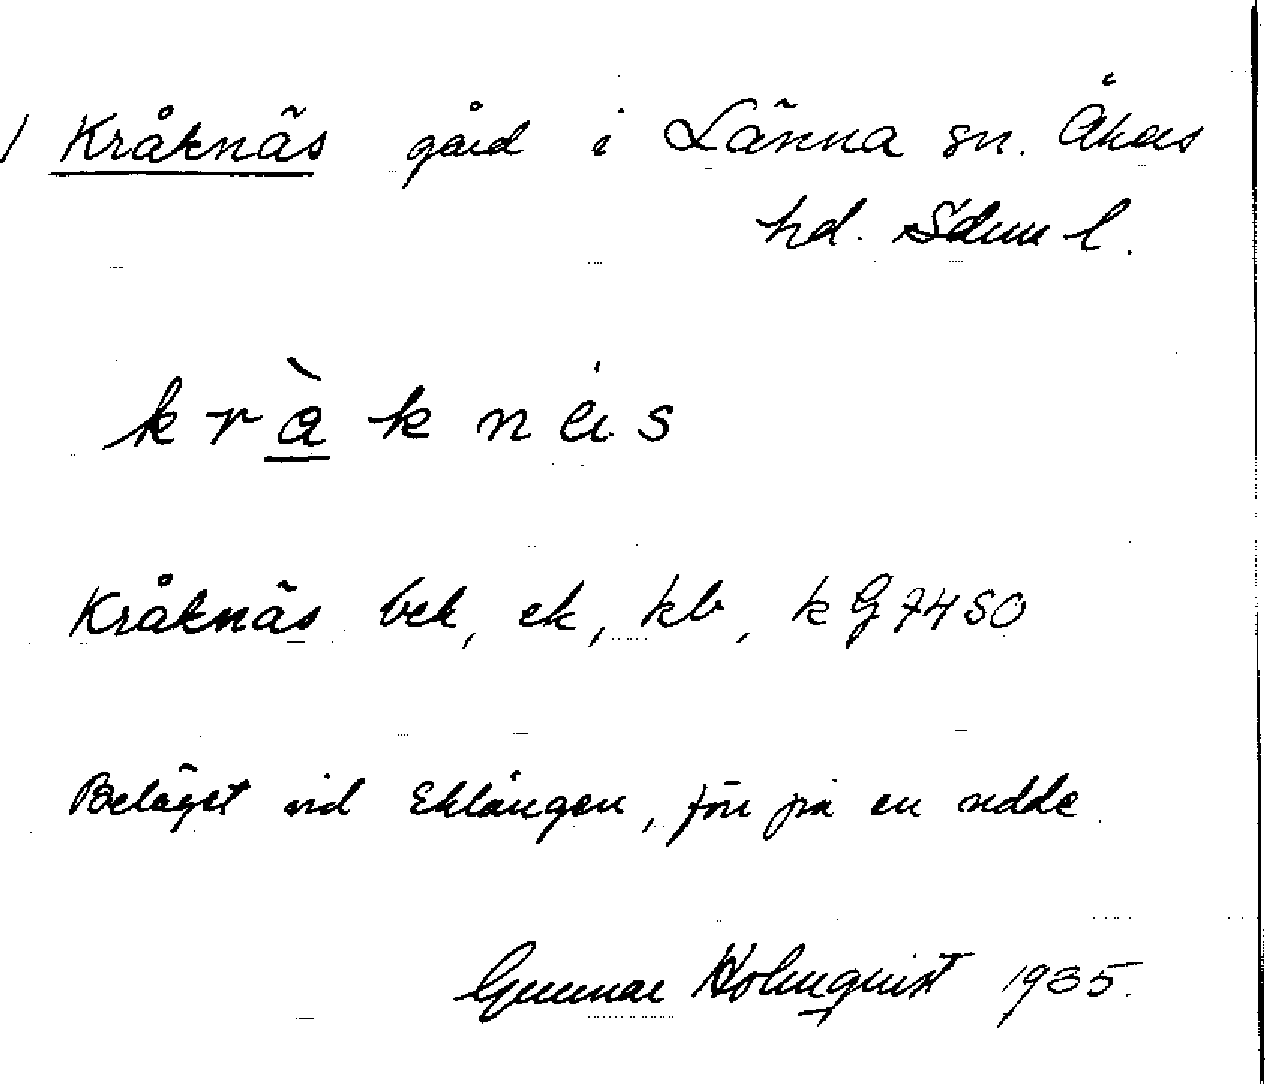 1 Kråknäs gård i Länna sn. Åkers
hd. Sdml.
kràknä́s
Kråknäs bek, ek, kb, kG 7450
Beläget vid Eklången, förr på en udde.
Gunnar Holmquist 1935.